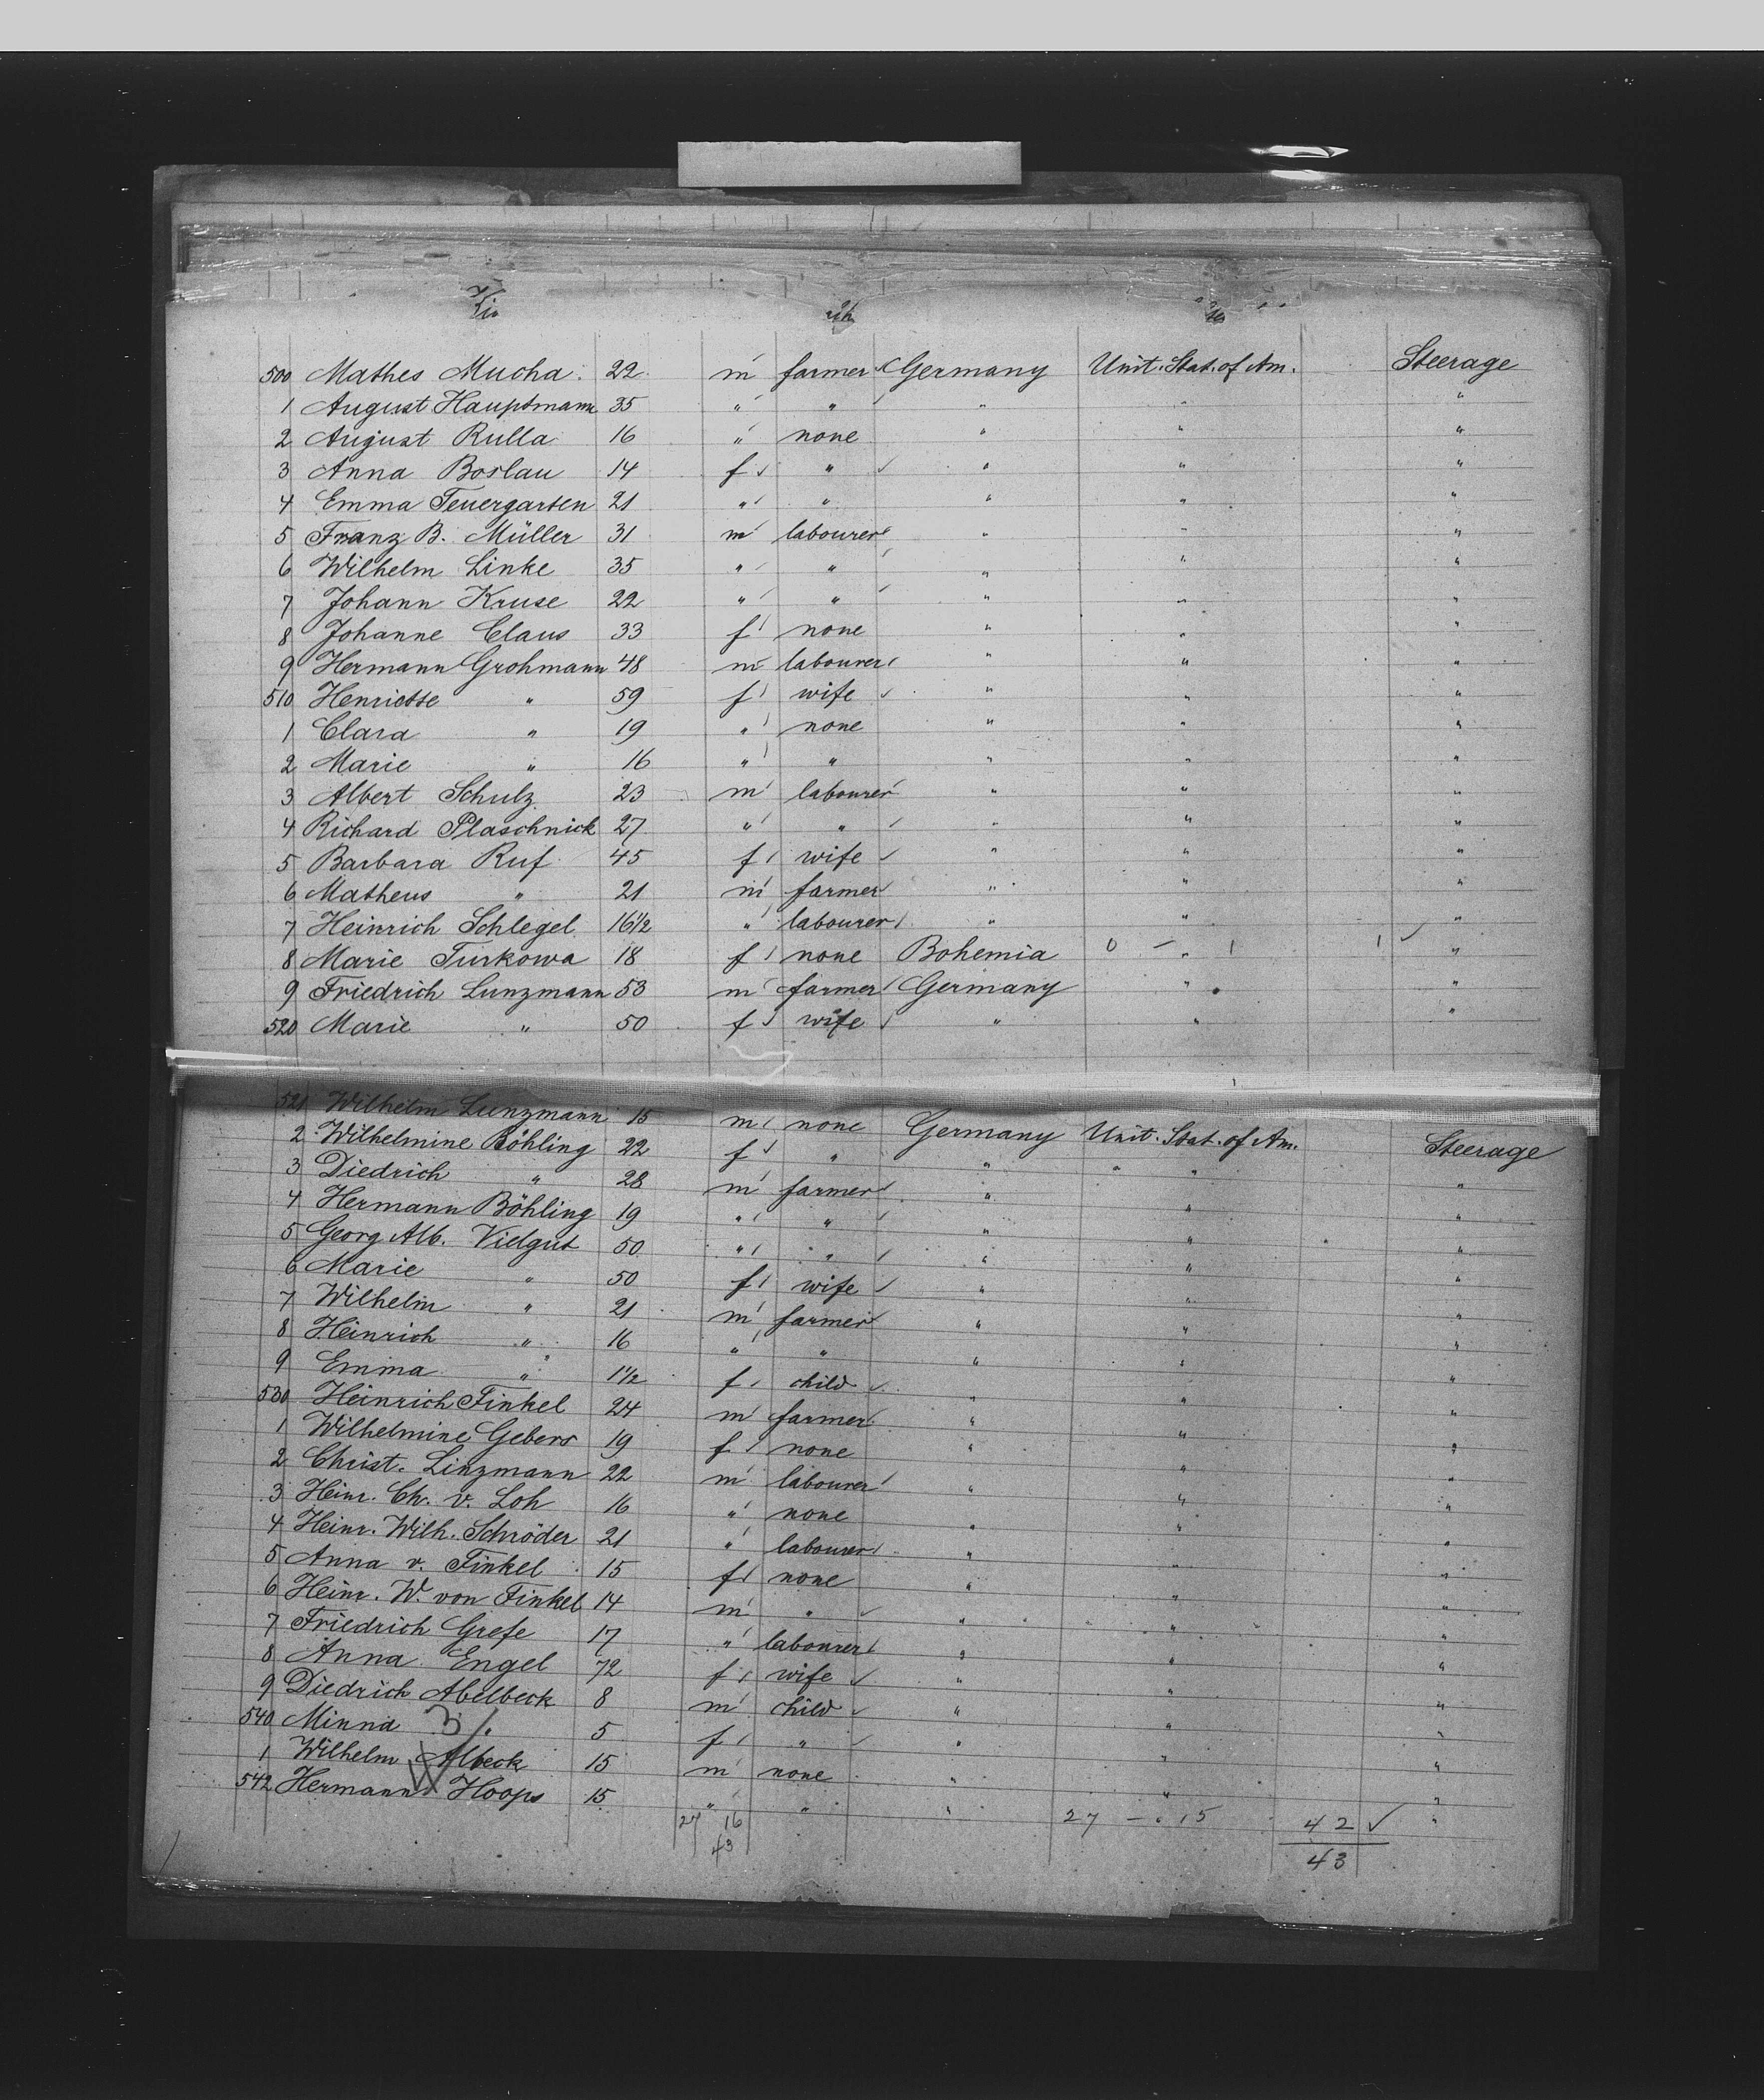 500 Mathes Mucha. 22. m farmer Germany Unit. Stat. of Am. Steerage
1 August Hauptmann 35 " " " " "
2 August Rulla 16 " none " " "
3 Anna Boslau 14 f " " " "
4 Emma Feuergarten 21 " " " " "
5 Franz B. Müller 31 m labourer " " "
6 Wilhelm Linke 35 " " " " "
7 Johann Kruse 22 " " " " "
8 Johanne Claus 33 f none " " "
9 Hermann Grohmann 48 m labourer " " "
510 Henriette " 59 f wife " " "
1 Clara " 19 " none " " "
2 Marie " 16 " " " " "
3 Albert Schulz 23 m labourer " " "
4 Richard Plaschnick 27 " " " " "
5 Barbara Ruf 45 f wife " " "
6 Matheus " 21 m farmer " " "
7 Heinrich Schlegel 16 1/2 " labourer " " "
8 Marie Turkowa 18 f none Bohemia 0 - " 1 1 ✓ "
9 Friedrich Lunzmann 53 m farmer Germany " "
520 Marie " 50 f wife " " "
521 Wilhelm Lunzmann 15 m none Germany Unit. Stat. of Am. Steerage
2 Wilhelmine Böhling 22 f " " " "
3 Diedrich " 28 m farmer " " "
4 Hermann Böhling 19 " " " " "
5 Georg Alb. Vielgut 50 " " " " "
6 Marie " 50 f wife " " "
7 Wilhelm " 21 m farmer " " "
8 Heinrich " 16 " " " " "
9 Emma " 1 1/2 f child " " "
530 Heinrich Finkel 24 m farmer " " "
1 Wilhelmine Gebers 19 f none " " "
2 Christ. Linzmann 22 m labourer " " "
3 Heinr. Ch. v. Loh 16 " none " " "
4 Heinr. Wilh. Schröder 21 " labourer " " "
5 Anna v. Finkel 15 f none " " "
6 Heinr. W. von Finkel 14 m " " " "
7 Friedrich Grefe 17 " labourer " " "
8 Anna Engel 72 f wife " " "
9 Diedrich Abelbeck 8 m child " " "
540 Minna " 5 f " " " "
1 Wilhelm Albeck 15 m none " " "
542 Hermann Hoops 15 " " " "
27 16 27 - 15 42 ✓
43 43